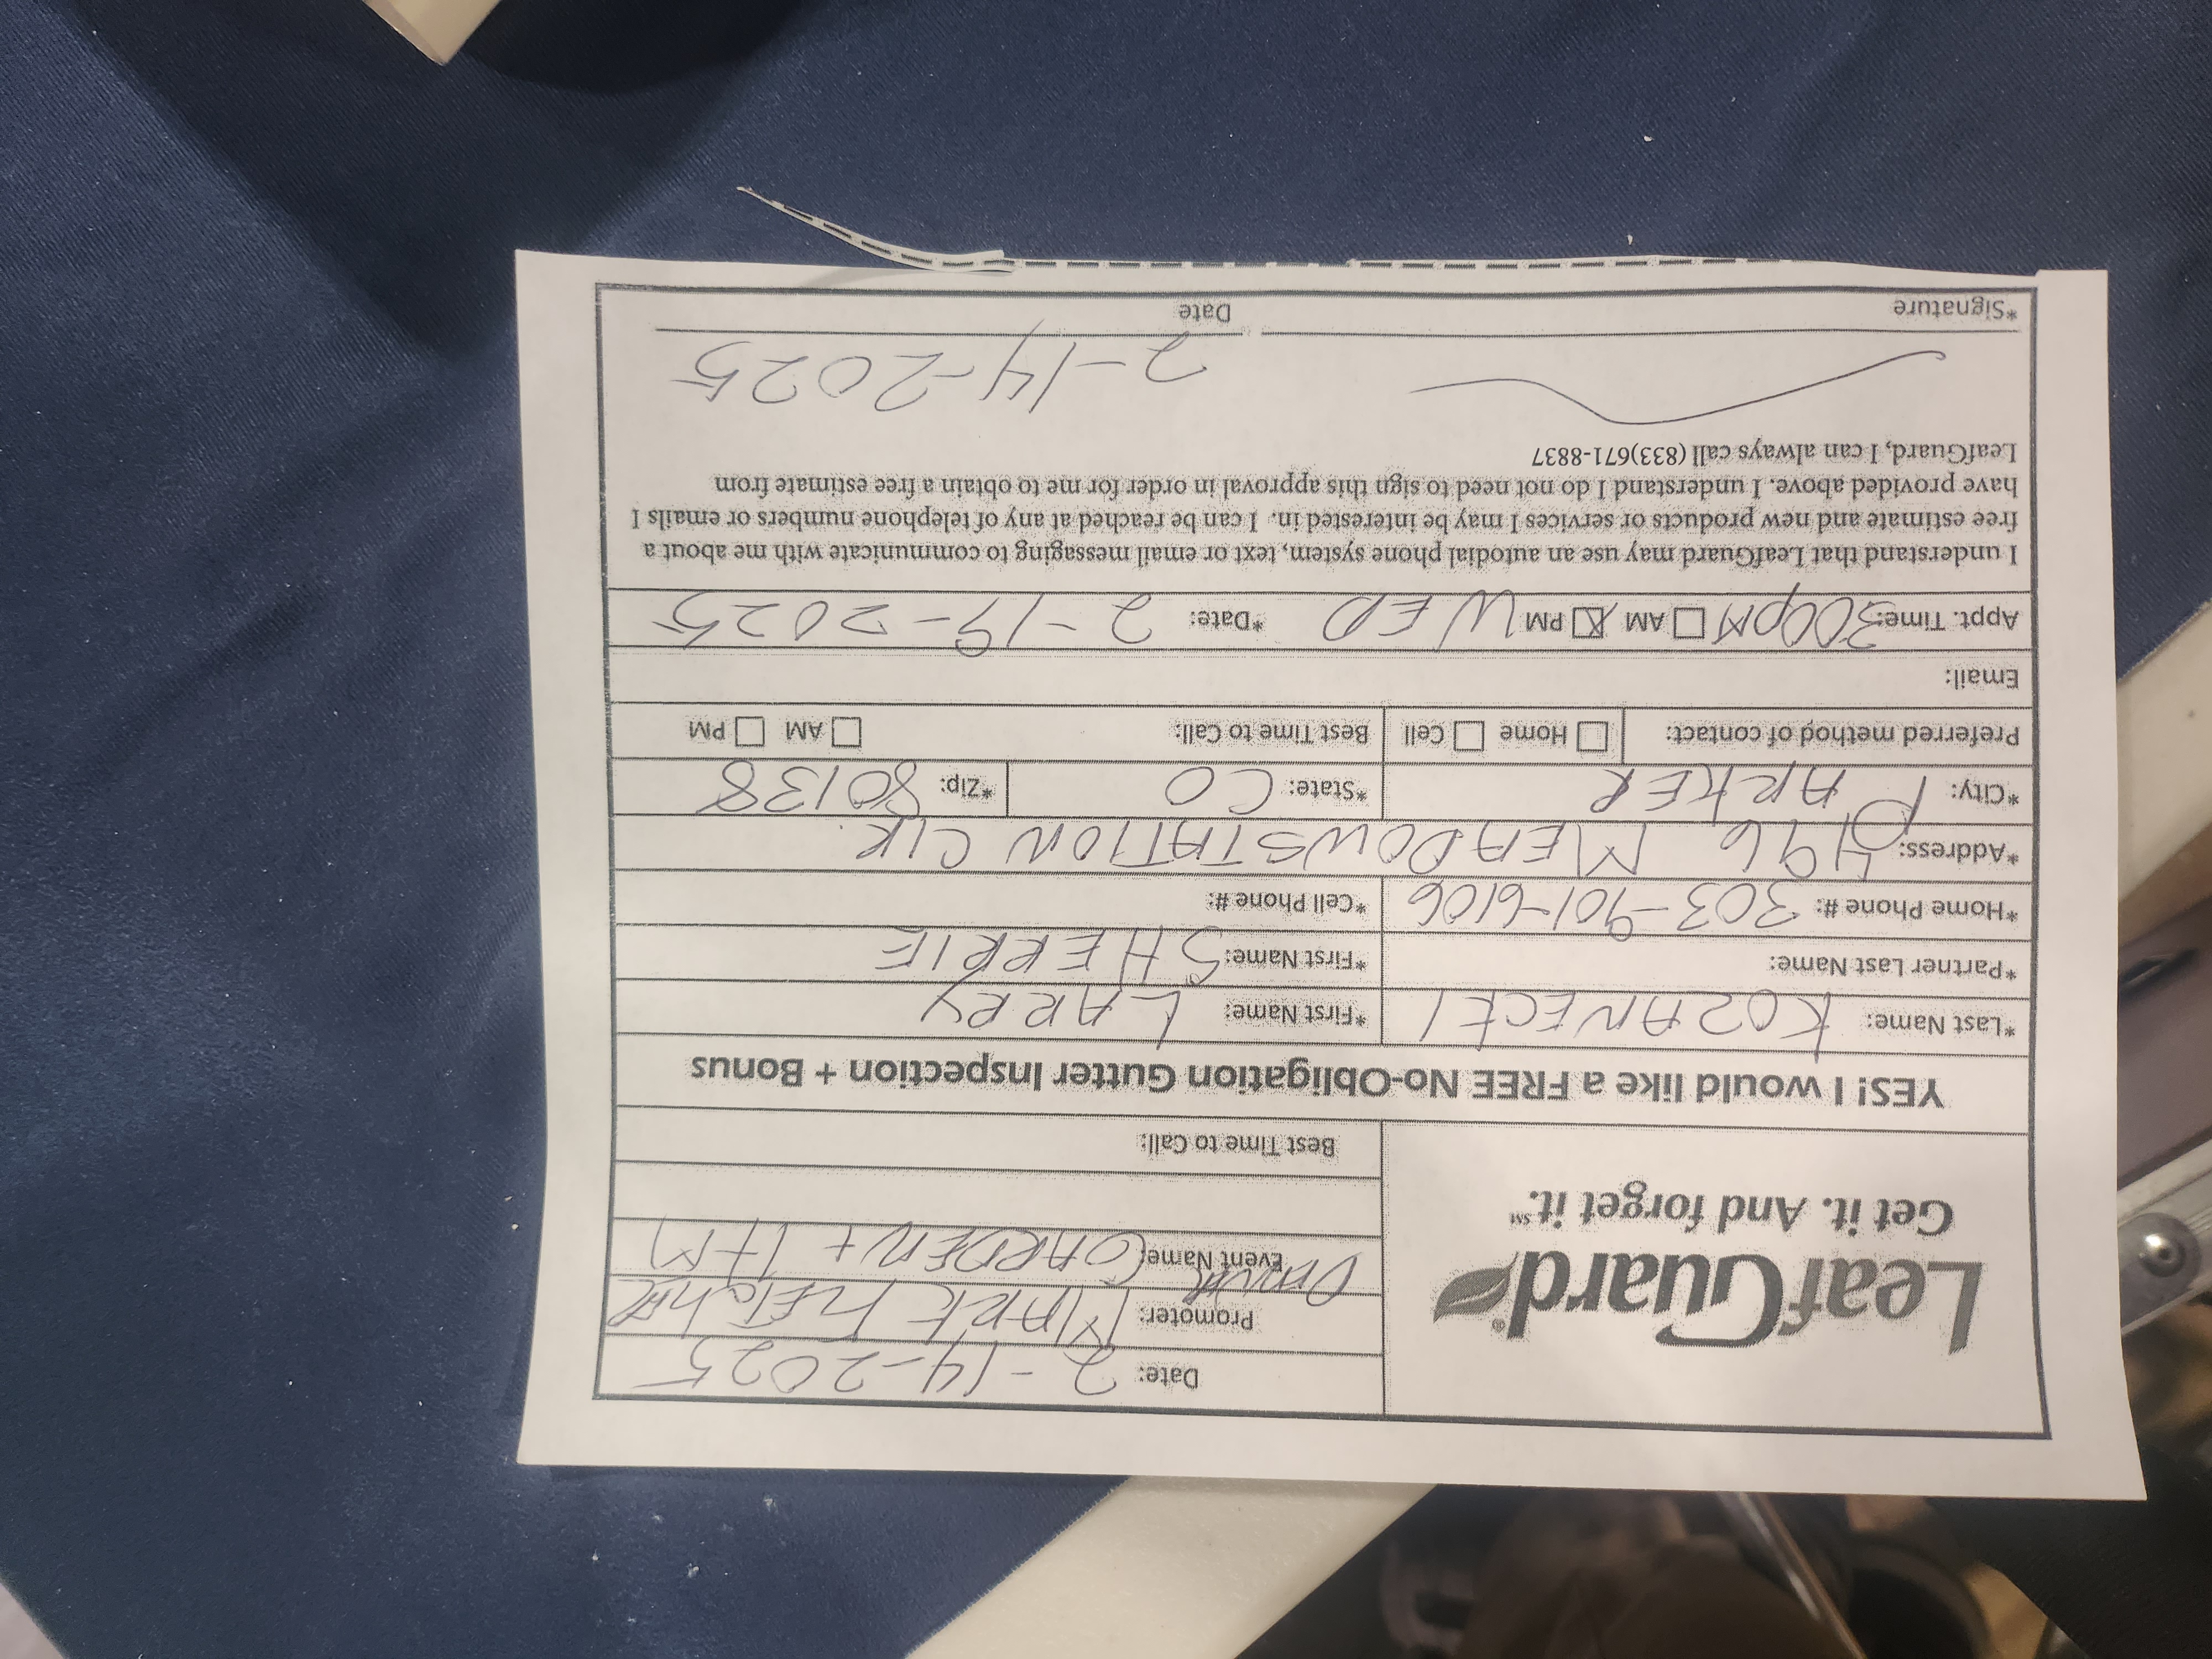 LeafGuard®
Get it. And forget it.℠
Date: 2-14-2025
Promoter: MARK
Event Name: GARDEN + HM
Best Time to Call:
YES! I would like a FREE No-Obligation Gutter Inspection + Bonus
*Last Name: KOZANECKI *First Name: LARRY
*Partner Last Name: *First Name: SHERRIE
*Home Phone #: 303-901-6106 *Cell Phone #:
*Address: 5496 MEADOWSTATION CIR.
*City: PARKER *State: CO *Zip: 80138
Preferred method of contact: Home Cell Best Time to Call: AM PM
Email:
Appt. Time: 300PM AM X PM WED *Date: 2-19-2025
I understand that LeafGuard may use an autodial phone system, text or email messaging to communicate with me about a
free estimate and new products or services I may be interested in. I can be reached at any of telephone numbers or emails I
have provided above. I understand I do not need to sign this approval in order for me to obtain a free estimate from
LeafGuard, I can always call (833)671-8837
2-14-2025
*Signature Date